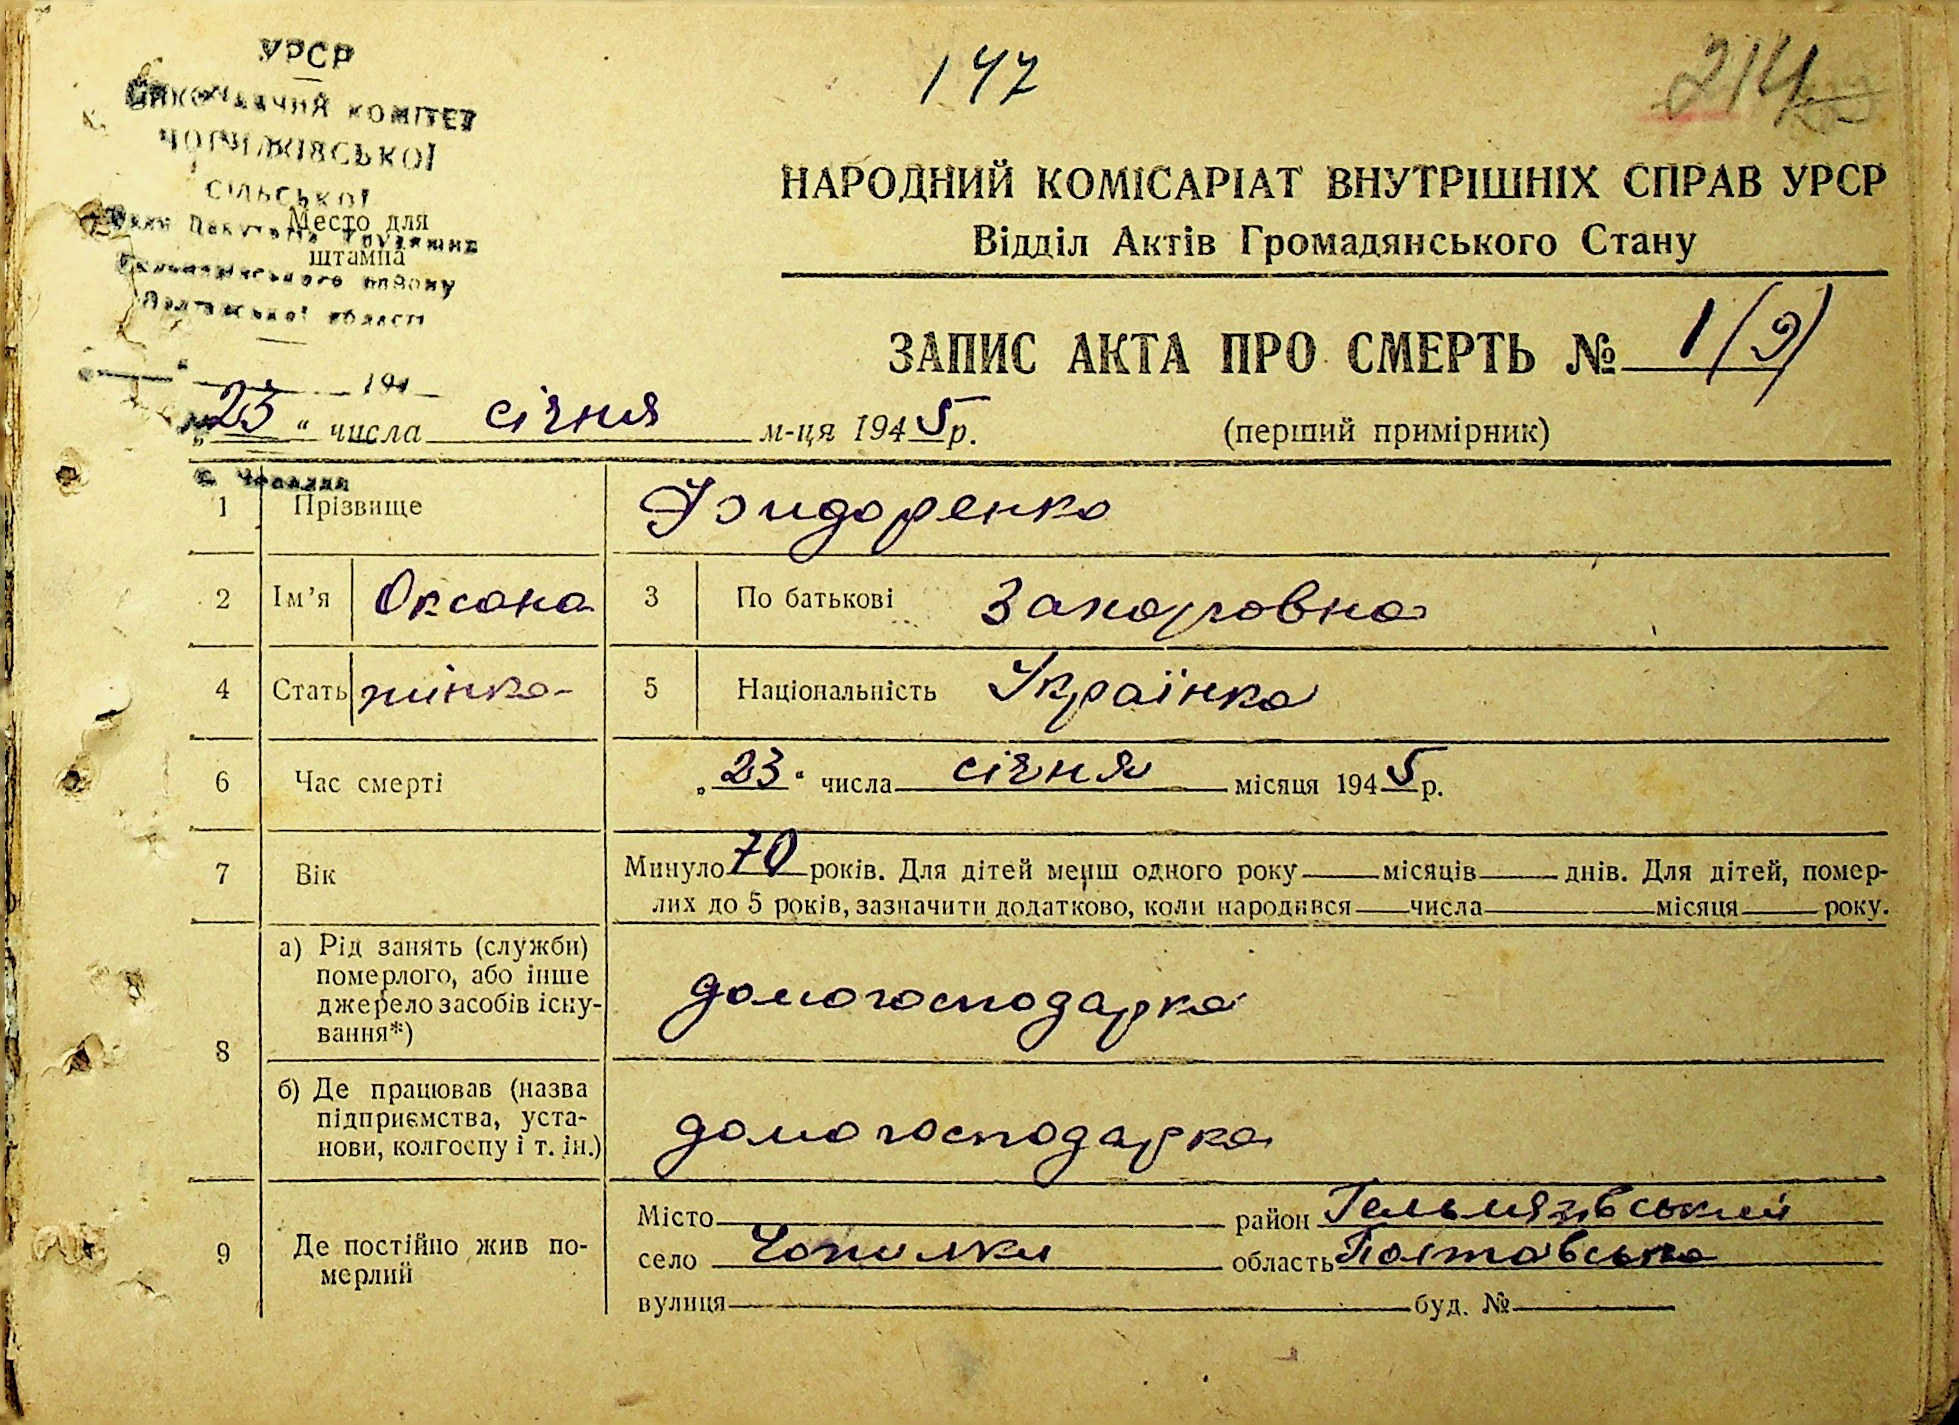 147
214
УРСР
ВИКОНАВЧИЙ КОМІТЕТ
СІЛЬСЬКОЇ
Место для
штампа
району
Полтавської області
194
НАРОДНИЙ КОМІСАРІАТ ВНУТРІШНІХ СПРАВ УРСР
Відділ Актів Громадянського Стану
ЗАПИС АКТА ПРО СМЕРТЬ № 1 (9)
„23“ числа січня м-ця 1945 р.
(перший примірник)
1 Прізвище
2 Ім’я Оксана 3 По батькові Захаровна
4 Стать жінка 5 Національність Українка
6 Час смерті „23“ числа січня місяця 1945 р.
7 Вік Минуло 70 років. Для дітей менш одного року місяців днів. Для дітей, помер-
лих до 5 років, зазначити додатково, коли народився числа місяця року.
8 а) Рід занять (служби)
померлого, або інше
джерело засобів існу-
вання*)
домогосподарка
б) Де працював (назва
підприємства, уста-
нови, колгоспу і т. ін.)
домогосподарка
9 Де постійно жив по-
мерлий
Місто район Гельмязівський
село Чопилки область Полтавська
вулиця буд. №